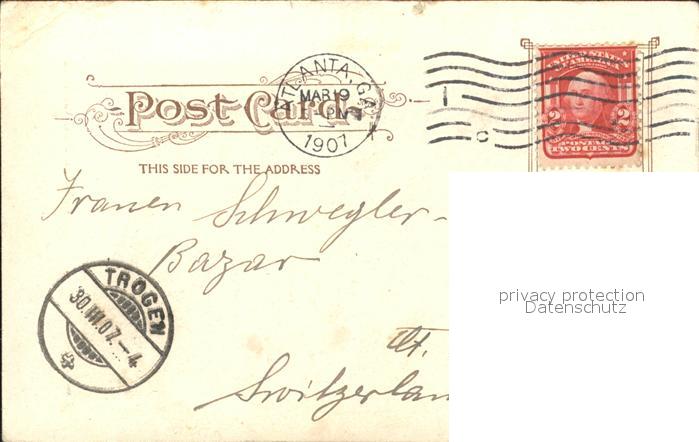 POST CARD.
THIS SIDE FOR THE ADDRESS
ATLANTA, GA.
MAR 9
PM
1907
C
UNITED STATES
OF AMERICA
2 2
POSTAGE
TWO CENTS
Frauen Schwegler-
Bazar
Ct.
Switzerlan
TROGEN
30.III.07.–4
privacy protection
Datenschutz